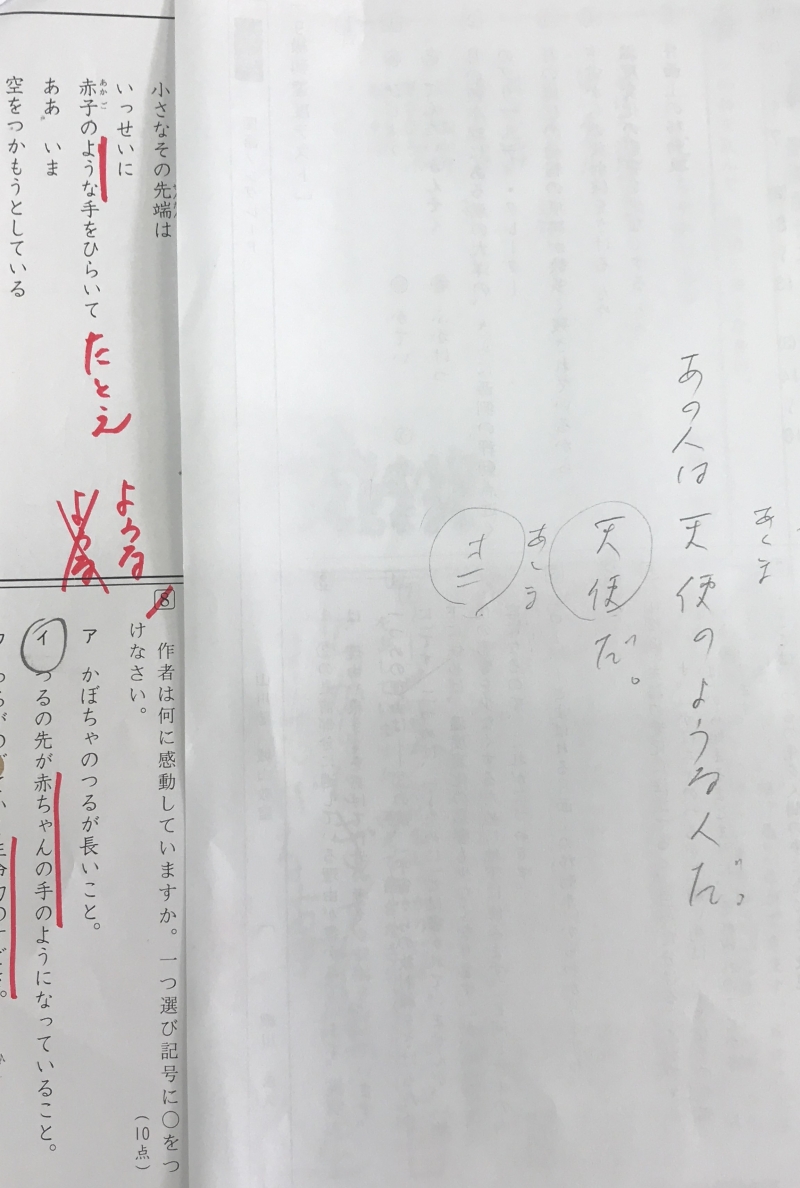 あくま
あの人は天使のような人だ。
天使だ。
あくま
オニ
小さなその先端は
いっせいに
赤子のような手をひらいて
あかご
たとえ
ああ いま
空をつかもうとしている
ような
8
作者は何に感動していますか。一つ選び記号に○をつ
けなさい。
(10点)
ア かぼちゃのつるが長いこと。
イ つるの先が赤ちゃんの手のようになっていること。